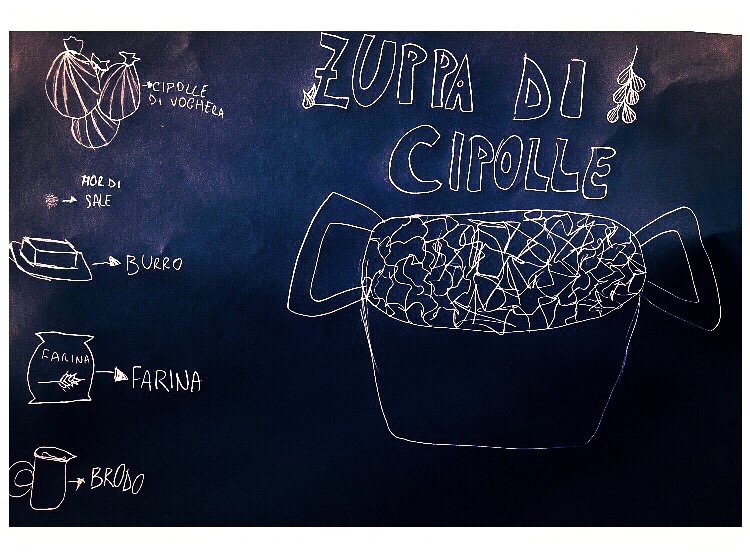 ZUPPA DI
CIPOLLE
CIPOLLE
DI VOGHERA
FIOR DI
SALE
BURRO
FARINA
FARINA
BRODO